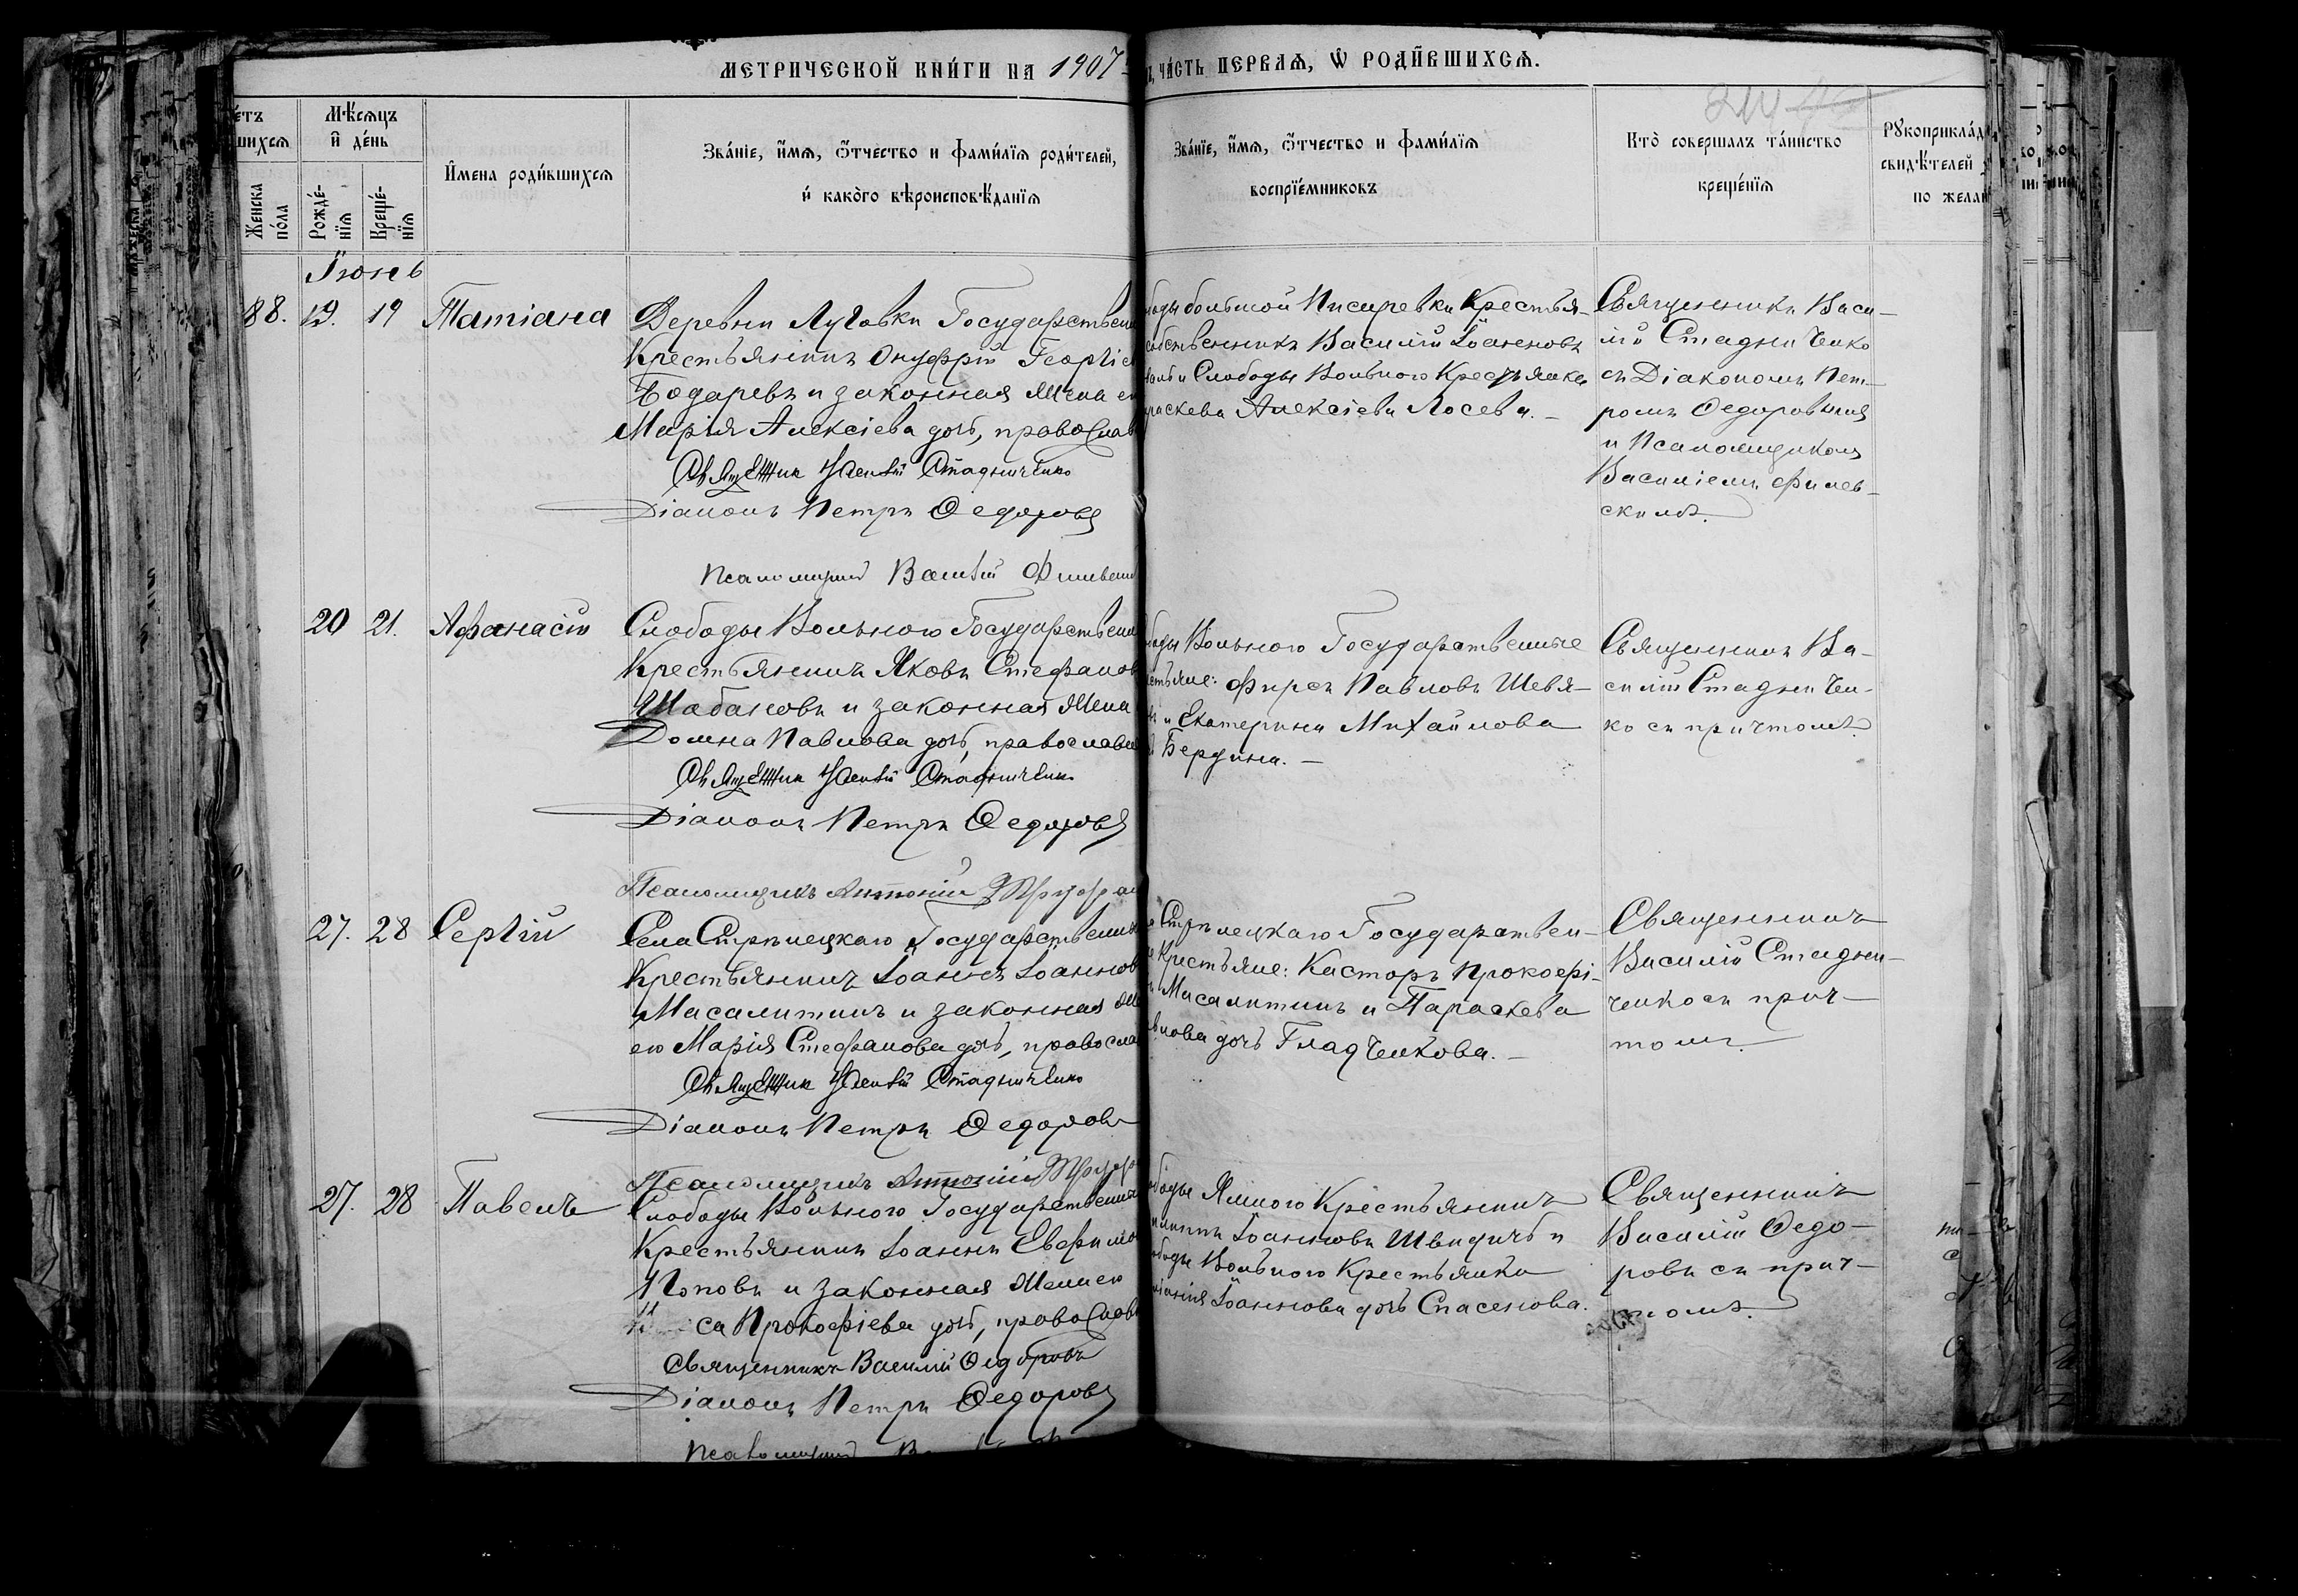 МЕТРИЧЕСКОЙ КНИ́ГИ НА 1907
ЧА́СТЬ ПЕРВАѦ, Ѡ РОДИ́ВШИХСѦ.
Мѣ́сѧцъ
и҆ де́нь
шихсѧ
Же́нска
по́ла
Рожде́-
нїѧ
Креще́-
нїѧ
И҆мена роди́вшихсѧ
Зва́нїе, и҆́мѧ, ѻ҆́тчество и фами́лїѧ роди́телей,
и҆ како́гѡ вѣроисповѣ́данїѧ
Зва́нїе, и҆́мѧ, ѻ҆́тчество и фами́лїѧ
воспрїе́мниковъ
Кто̀ соверша́лъ та́инство
креще́нїѧ
Рукоприкла́д
свидѣ́телей
по жела
Іюнь
88. 19. 19 Татіана
Деревни Луговки Государствен
Крестьянинъ Онуфрій Георгіе
Бодаревъ и законная жена е
Марія Алексіева дочь, православ
Священник Василій Стадниченко
Діаконъ Петръ Ѳедоровъ
Псаломщикъ Василій Филевск
большой Писаревки Крестья-
собственникъ Василій Іоанновъ
и Слободы Вольного Крестьянка
раскева Алексіева Лосева. -
Священникъ Васи-
лій Стадничено
съ Діакономъ Пет-
ромъ Ѳедоровымъ
и Псаломщикомъ
Василіемъ Филев-
скимъ.
20 21. Афанасій
Слободы Вольного Государствен
Крестьянинъ Яковъ Стефанов
Шабановъ и законная жена
Домна Павлова дочь, православ
Священник Василій Стадниченко
Діаконъ Петръ Ѳедоровъ
Псаломщикъ Антоній
Вольного Государственные
Фирсъ Павловъ Шевя-
и Екатерина Михайлова
Бердина. -
Священникъ Ва-
силій Стадничен-
ко съ причтомъ.
27. 28 Сергій
Села Стрѣлецкаго Государствен
Крестьянинъ Іоаннъ Іоаннов
Масалитинъ и законная же
его Марія Стефанова дочь, правосла
Священник Василій Стадниченко
Діаконъ Петръ Ѳедоров
Псаломщикъ Антоній
Стрѣлецкаго Государствен-
Крестьяне: Касторъ Прокофі-
Масалитинъ и Параскева
влова дочь Гладченкова. -
Священникъ
Василій Стадни-
ченко съ прич-
томъ.
27. 28 Павелъ
Слободы Вольного Государственн
Крестьянинъ Іоаннъ Евфимо
Поповъ и законная жена его
са Прокофіева дочь, православ
Священникъ Василій Ѳедоровъ
Діаконъ Петръ Ѳедоровъ
Псаломщикъ
Ямного Крестьянинъ
Іоанновъ Швидичъ и
Вольного Крестьянка
Іоаннова дочь Спасенова.
Священникъ
Василій Ѳедо-
ровъ съ прич-
томъ.